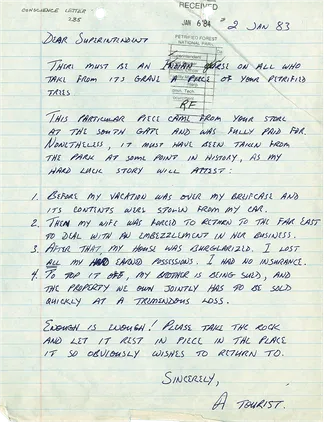 CONSCIENCE LETTER
285
RECEIVED
JAN 6 '84
PETRIFIED FOREST
NATIONAL PARK
2 JAN 83
DEAR SUPERINTENDENT
THERE MUST BE AN INDIAN CURSE ON ALL WHO
TAKE FROM ITS GRAVE A PIECE OF YOUR PETRIFIED
TREES
RE
THIS PARTICULAR PIECE CAME FROM YOUR STORE
AT THE SOUTH GATE AND WAS FULLY PAID FOR.
NONETHELESS, IT MUST HAVE BEEN TAKEN FROM
THE PARK AT SOME POINT IN HISTORY, AS MY
HARD LUCK STORY WILL ATTEST:
1. BEFORE MY VACATION WAS OVER MY BRIEFCASE AND
ITS CONTENTS WERE STOLEN FROM MY CAR.
2. THEN MY WIFE WAS FORCED TO RETURN TO THE FAR EAST
TO DEAL WITH AN EMBEZZLEMENT IN HER BUSINESS.
3. AFTER THAT MY HOUSE WAS BURGLARIZED. I LOST
ALL MY HARD EARNED POSSESSIONS. I HAD NO INSURANCE.
4. TO TOP IT OFF, MY BROTHER IS BEING SUED, AND
THE PROPERTY WE OWN JOINTLY HAS TO BE SOLD
QUICKLY AT A TREMENDOUS LOSS.
ENOUGH IS ENOUGH! PLEASE TAKE THE ROCK
AND LET IT REST IN PIECE IN THE PLACE
IT SO OBVIOUSLY WISHES TO RETURN TO.
SINCERELY,
A TOURIST.